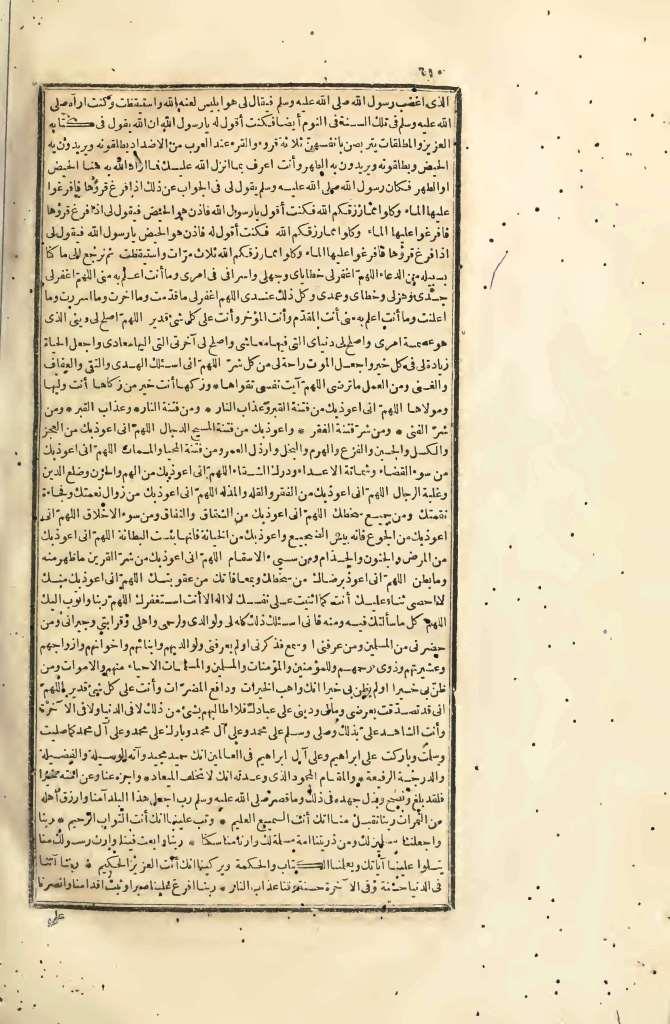 ٥٩٠
الذى اغضب رسول الله صلى الله عليه وسلم فيقال لى هو ابليس لعنه الله واستيقظت وكنت اراه صلى
الله عليه وسلم فى تلك السنة فى النوم أيضا فكنت أقول له يا رسول الله ان الله يقول فى كتابه
العزيز والمطلقات يتربصن بانفسهن ثلاثة قروء والقرء عند العرب من الاضداد يطلقونه ويريدون به
الحيض ويطلقونه ويريدون به الطهر وأنت اعرف بما انزل الله عليك فما اراد الله به هنا الحيض
او الطهر فكان رسول الله صلى الله عليه وسلم يقول لى فى الجواب عن ذلك اذا فرغ قرؤها فافرغوا
عليها الماء وكلوا مما رزقكم الله فكنت أقول يا رسول الله فاذن هو الحيض فيقول لى اذا فرغ قرؤها
فافرغوا عليها الماء وكلوا مما رزقكم الله فكنت أقول له فاذن هو الحيض يا رسول الله فيقول لى
اذا فرغ قرؤها فافرغوا عليها الماء وكلوا مما رزقكم الله ثلاث مرات واستيقظت ثم نرجع الى ما كنا
بسبيله من الدعاء اللهم اغفر لى خطاياى وجهلى واسرافى فى امرى وما أنت اعلم به منى اللهم اغفر لى
جدى وهزلى وخطاى وعمدى وكل ذلك عندى اللهم اغفر لى ما قدمت وما اخرت وما اسررت وما
اعلنت وما أنت اعلم به منى أنت المقدم وأنت المؤخر وأنت على كل شئ قدير اللهم اصلح لى دينى الذى
هو عصمة امرى واصلح لى دنياى التى فيها معاشى واصلح لى آخرتى التى اليها معادى واجعل الحياة
زيادة لى فى كل خير واجعل الموت راحة لى من كل شر اللهم انى اسئلك الهدى والتقى والعفاف
والغنى ومن العمل ما ترضى اللهم آيت نفسى تقواها * وزكها أنت خير من زكاها أنت وليها
ومولاها اللهم انى اعوذ بك من فتنة القبر وعذاب النار * ومن فتنة النار * وعذاب القبر * ومن
شر الغنى * ومن شر فتنة الفقر * واعوذ بك من فتنة المسيح الدجال اللهم انى اعوذ بك من العجز
والكسل والجبن والفزع والهرم والبخل وارذل العمر ومن فتنة المحيا والممات اللهم انى اعوذ بك
من سوء القضاء وشماتة الاعداء ودرك الشقاء اللهم انى اعوذ بك من الهم والحزن وضلع الدين
وغلبة الرجال اللهم انى اعوذ بك من الفقر والقلة والمذلة اللهم انى اعوذ بك من زوال نعمتك وفجاءة
نقمتك ومن جميع سخطك اللهم انى اعوذ بك من الشقاق والنفاق ومن سوء الاخلاق اللهم انى
اعوذ بك من الجوع فانه بئس الضجيع واعوذ بك من الخيانة فانها بئست البطانة اللهم انى اعوذ بك
من المرض والجنون والجذام ومن سىء الاسقام اللهم انى اعوذ بك من شر القرين ما ظهر منه
وما بطن اللهم انى اعوذ برضاك من سخطك وبمعافاتك من عقوبتك اللهم انى اعوذ بك منك
لا احصى ثناء عليك أنت كما اثنيت على نفسك لا اله الا أنت استغفرك اللهم ربنا واتوب اليك
اللهم كل ما سألتك فيه ومنه فانى اسئلك ذلك كله لى ولوالدى ولرحمى واهلى وقرابتى وجيرانى ومن
حضرنى من المسلمين ومن عرفنى او سمع بذكرنى او لم يعرفنى ولوالديهم وابنائهم واخوانهم وازواجهم
وعشيرتهم وذوى رحمهم وللمؤمنين والمؤمنات والمسلمين والمسلمات الاحياء منهم والاموات ومن
ظن بى خيرا او لم يظن بى خيرا انك واهب الخيرات ودافع المضرات وأنت على كل شئ قدير اللهم
انى قد تصدقت بعرضى ومالى ودينى على عبادك فلا اطالبهم بشئ من ذلك لا فى الدنيا ولا فى الآخرة
وأنت الشاهد على بذلك وصلى وسلم على محمد وعلى آل محمد وبارك على محمد وعلى آل محمد كما صليت
وسلمت وباركت على ابراهيم وعلى آل ابراهيم فى العالمين انك حميد مجيد وآته الوسيلة والفضيلة
والدرجة الرفيعة * والمقام المحمود الذى وعدته انك لا تخلف الميعاد * واجزه عنا وعن امته خيرا
فلقد بلغ ونصح وبذل جهده فى ذلك وما قصر صلى الله عليه وسلم رب اجعل هذا البلد آمنا وارزق اهله
من الثمرات ربنا تقبل منا انك أنت السميع العليم * وتب علينا انك أنت التواب الرحيم * ربنا
واجعلنا مسلمين لك ومن ذريتنا امة مسلمة لك وارنا مناسكنا * ربنا وابعث فينا وارث رسولك منا
يتلوا علينا آياتك ويعلمنا الكتاب والحكمة ويزكينا انك أنت العزيز الحكيم * ربنا آتنا
فى الدنيا حسنة وفى الآخرة حسنة وقنا عذاب النار * ربنا افرغ علينا صبرا وثبت اقدامنا وانصرنا
على